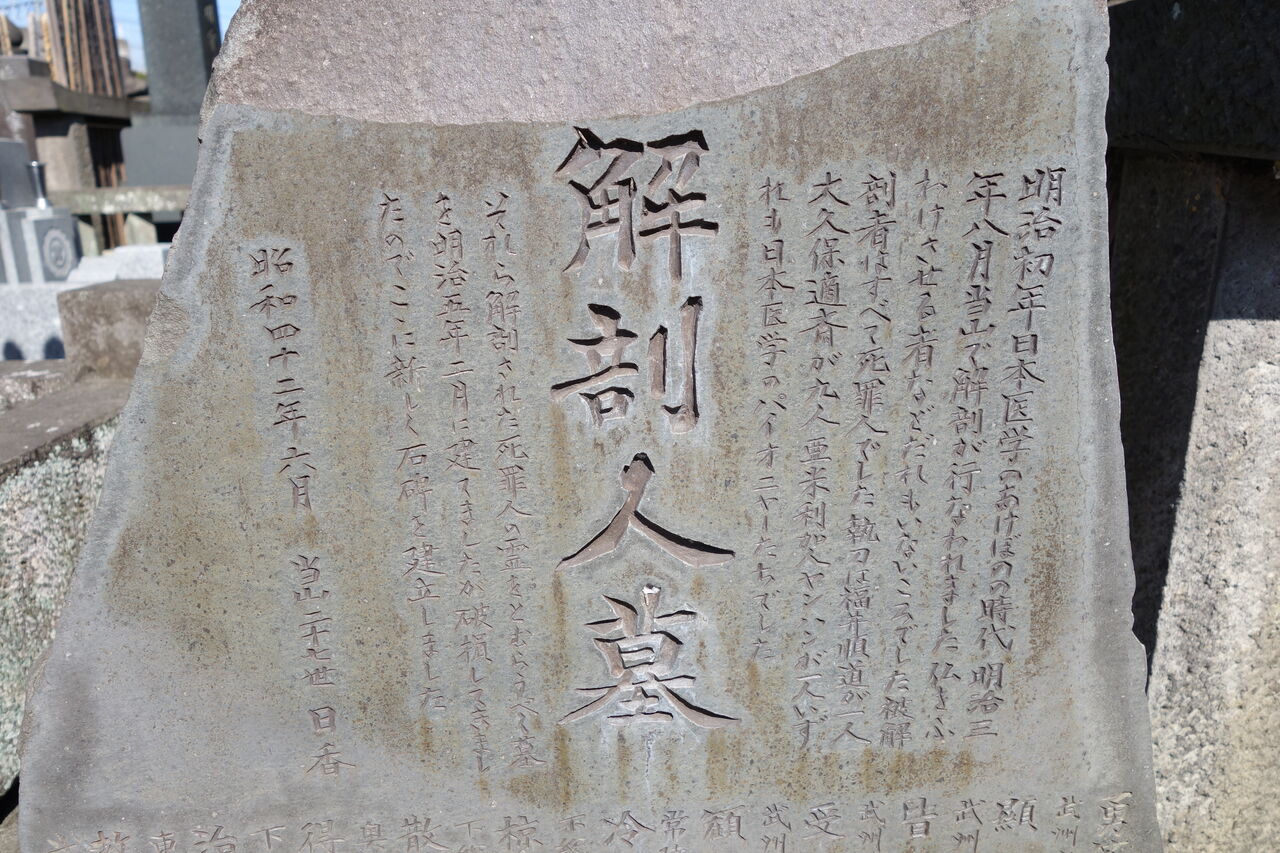 明治初年日本医学のあけぼのの時代 明治三
年八月当山で解剖が行なわれました 仏をふ
わけさせる者などだれもいないころでした 被解
剖者はすべて死罪人でした 執刀は福井順道が一人
大久保適斉が九人 亜米利加人ヤンハンが一人いず
れも日本医学のパイオニヤーたちでした
解剖人墓
それら解剖された死罪人の霊をとむらうべく墓
を明治五年二月に建てましたが破損してきまし
たのでここに新しく石碑を建立しました
昭和四十二年六月 当山二十七世 日香
武州
顯
武州
皆
武州
受
武州
顧
冷
椋
散
奥
得
下
治
東